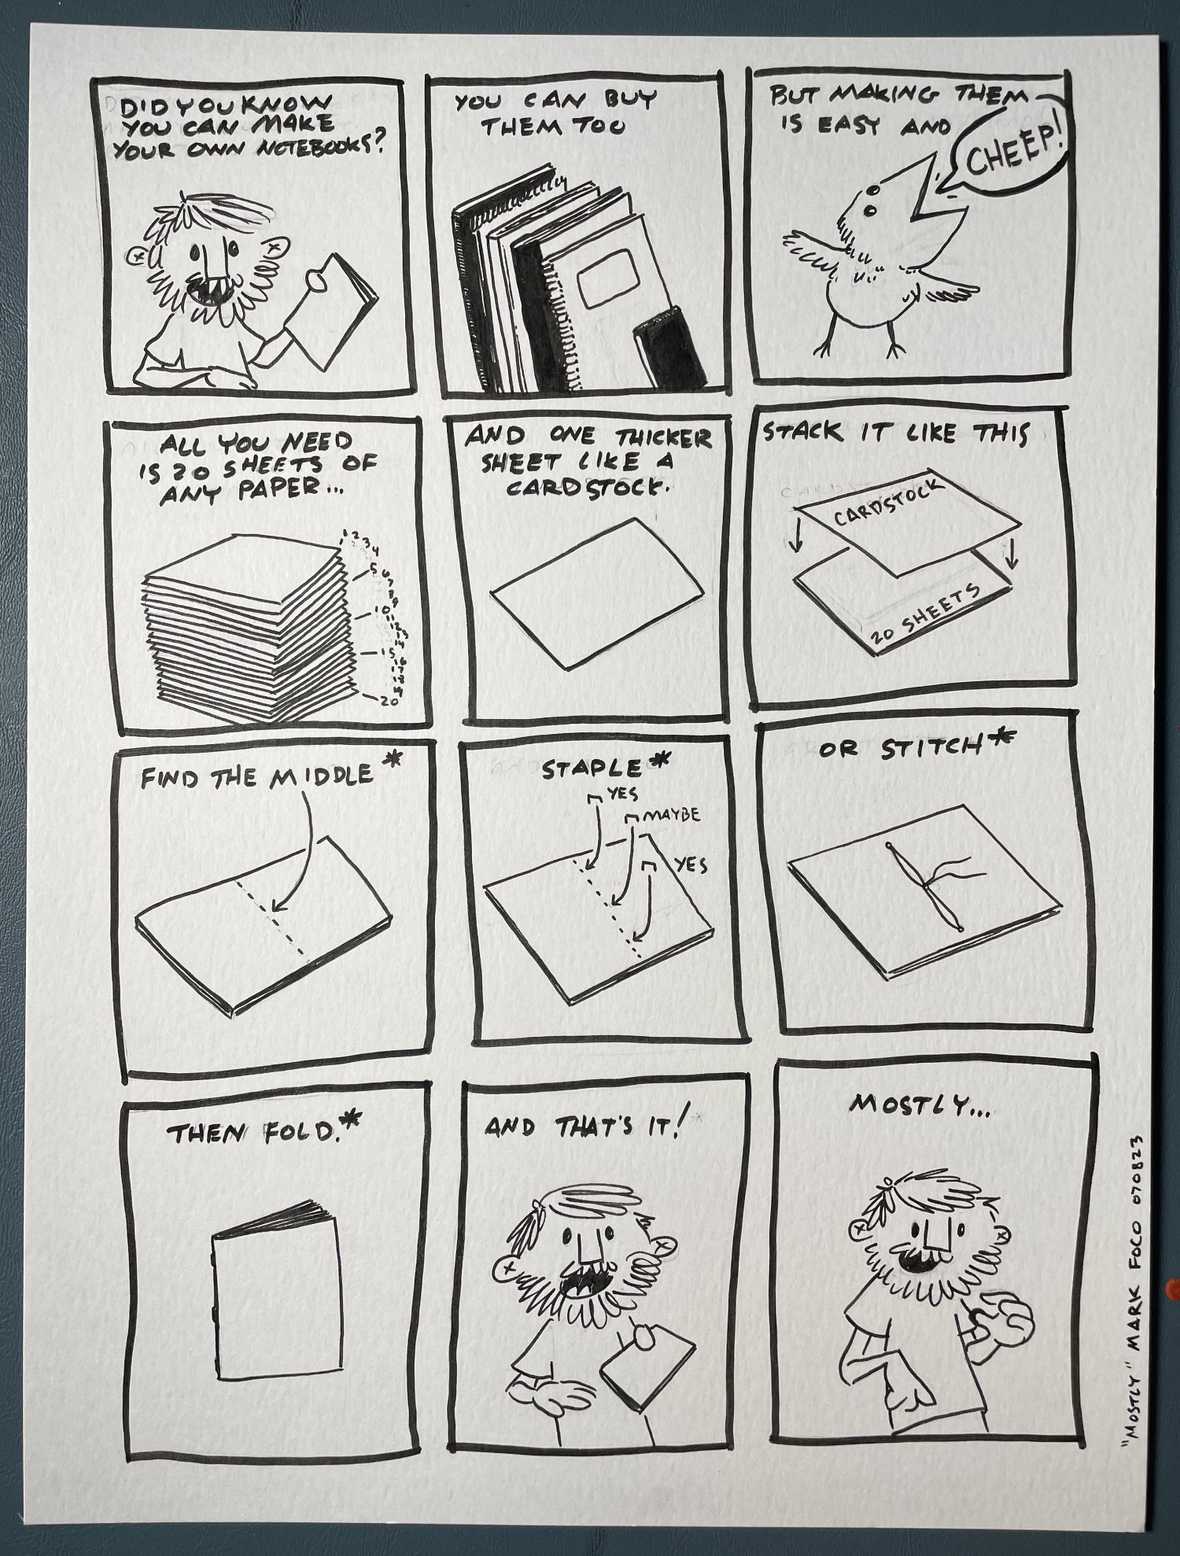 DID YOU KNOW
YOU CAN MAKE
YOUR OWN NOTEBOOKS?
YOU CAN BUY
THEM TOO
BUT MAKING THEM
IS EASY AND
CHEEP!
ALL YOU NEED
IS 20 SHEETS OF
ANY PAPER...
1
2
3
4
5
6
7
8
9
10
11
12
13
14
15
16
17
18
19
20
AND ONE THICKER
SHEET LIKE A
CARDSTOCK.
STACK IT LIKE THIS
CARDSTOCK
20 SHEETS
FIND THE MIDDLE*
STAPLE*
YES
MAYBE
YES
OR STITCH*
THEN FOLD.*
AND THAT'S IT!
MOSTLY...
"MOSTLY" MARK FOCO 070823